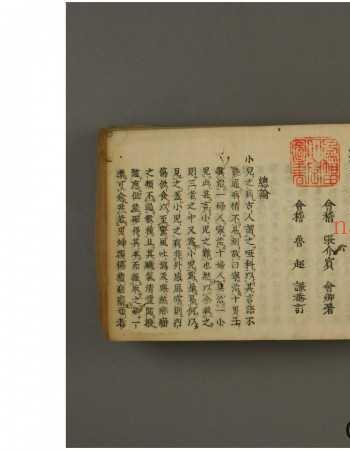 會稽 張介賓 會卿著
會稽 魯超 謙菴訂
總論
小兒之病古人謂之啞科以其言語不
能通病情不易測故曰寧治十男子
莫治一婦人寧治十婦人莫治一小
兒此甚言小兒之難也然以余較之
則三者之中又為小兒為最易何以
見之蓋小兒之病非外感風寒則內
傷飲食以至驚風吐瀉及寒熱疳癇
之類不過數種且其臟氣清靈隨撥
隨應但能確得其本而撮取之則一
藥可愈非若男婦損傷積痼癡頑者